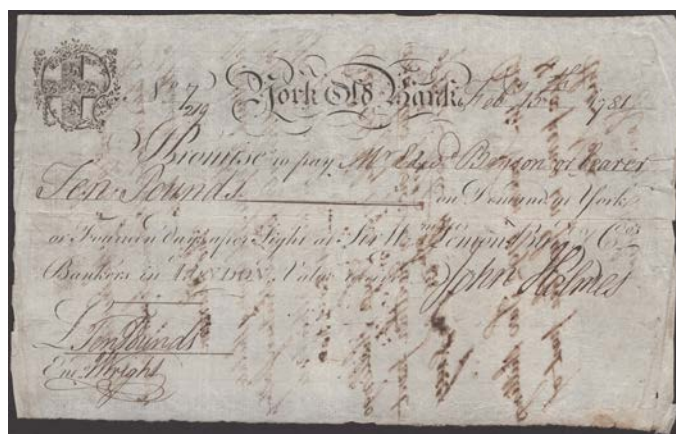 No 7/219 York Old Bank, Feb 1781
I Promise to pay Mr Edwd Benson or bearer
Ten Pounds on Demand at York
or Fourteen days after Sight at Sir Wm Lemon Bart & Cos
Bankers in LONDON, Value received
John Holmes
£ Ten Pounds
Ent Wright